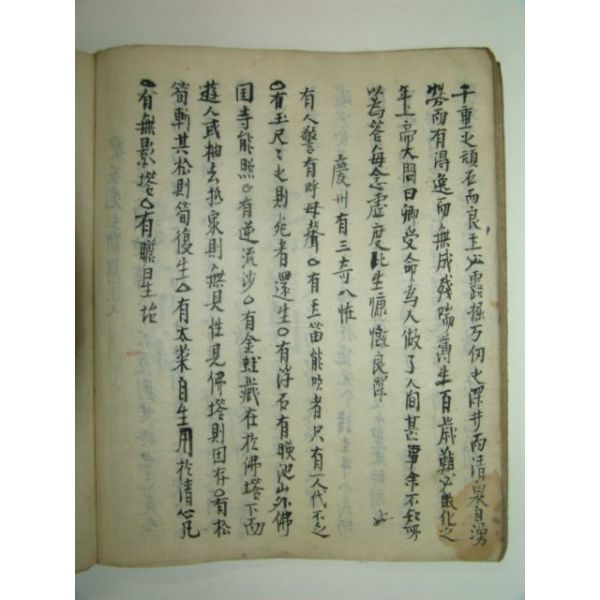 千重之頑石而良玉必露掘万仞之深井而清泉自湧
勞而有得逸而無成殘喘薄生百歲難必散化之
年上帝大問曰卿受命爲人做了人間甚事余不知所
以爲答每念虛度此生慷慨良深
慶州有三奇八怪
有人警有呼母聲○有玉笛能吹者只有一人代不乏
○有玉尺〻之則死者還生○有浮石有暎池山外佛
国寺能照○有逆流沙○有金蛙藏在於佛塔下而
遊人或袖去抵家則無見往見佛塔則回存○有松
筍斬其松則筍復生○有太菜自生用於清心凡
○有無影塔○有瞻星坮